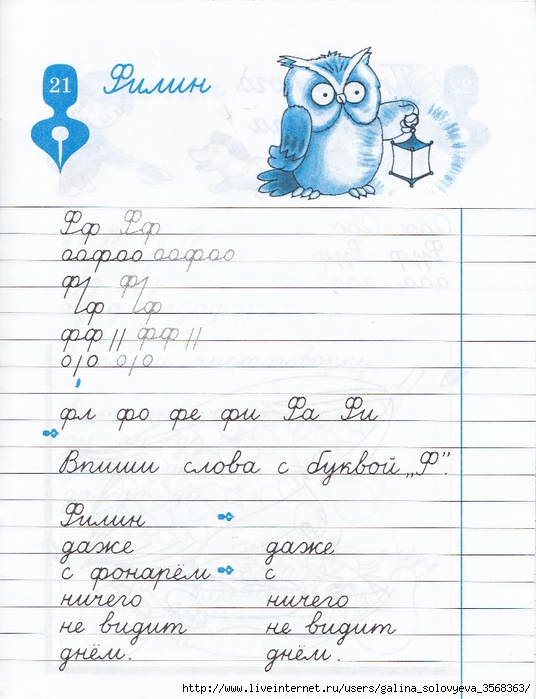 21 Филин
Фф Фф
оофоо оофоо
ф| ф|
|ф |ф
фф || фф ||
о|о о|о
фл фо фе фи Фа Фи
Впиши слова с буквой „Ф".
Филин
даже даже
с фонарём с
ничего ничего
не видит не видит
днём. днём.
http://www.liveinternet.ru/users/galina_solovyeva_3568363/